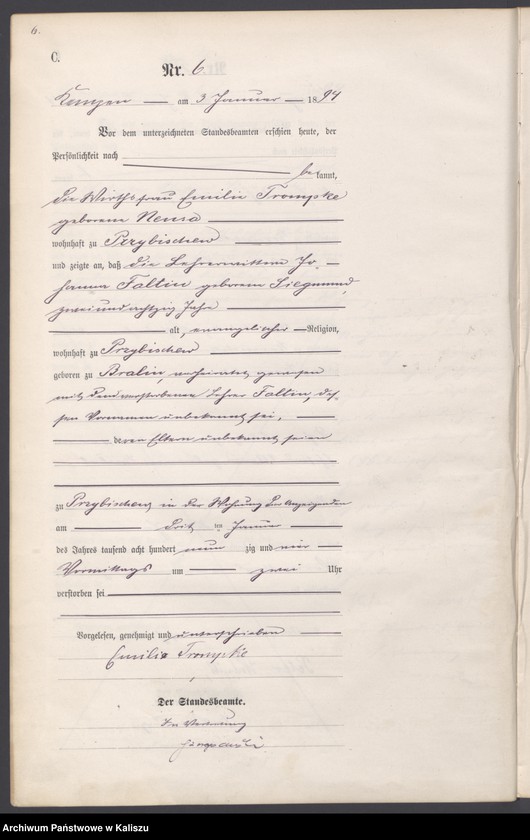 6.
C.
Nr. 6.
Kempen am 3 Januar 1894
Vor dem unterzeichneten Standesbeamten erschien heute, der
Persönlichkeit nach
bekannt,
die Wirthsfrau Emilie Trompke
geborene
wohnhaft zu Przybischew
und zeigte an, daß die Lehrerwittwe Jo-
hanna Fallin geborene Siegmund,
zweiundachtzig Jahr
alt, evangelischer Religion,
wohnhaft zu Przybischew
geboren zu Bralin, verheiratet gewesen
mit dem verstorbenen Lehrer Fallin, des-
sen Vornamen unbekannt sei,
deren Eltern unbekannt seien
zu Przybischew in der Wohnung der Anzeigenden
am Drit ten Januar
des Jahres tausend acht hundert neun zig und vier
Vormittags um zwei Uhr
verstorben sei
Vorgelesen, genehmigt und unterschrieben
Emilie Trompke
Der Standesbeamte.
In Vertretung
Archiwum Państwowe w Kaliszu